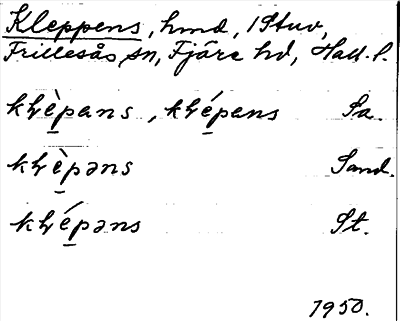 Kleppens, hmd, 1 Stuv,
Frillesås sn, Fjäre hd, Hall. l.
kLè̠pans, kLé̠pans Sa.
kLè̠pəns Sand.
kLé̠pəns St.
1950.